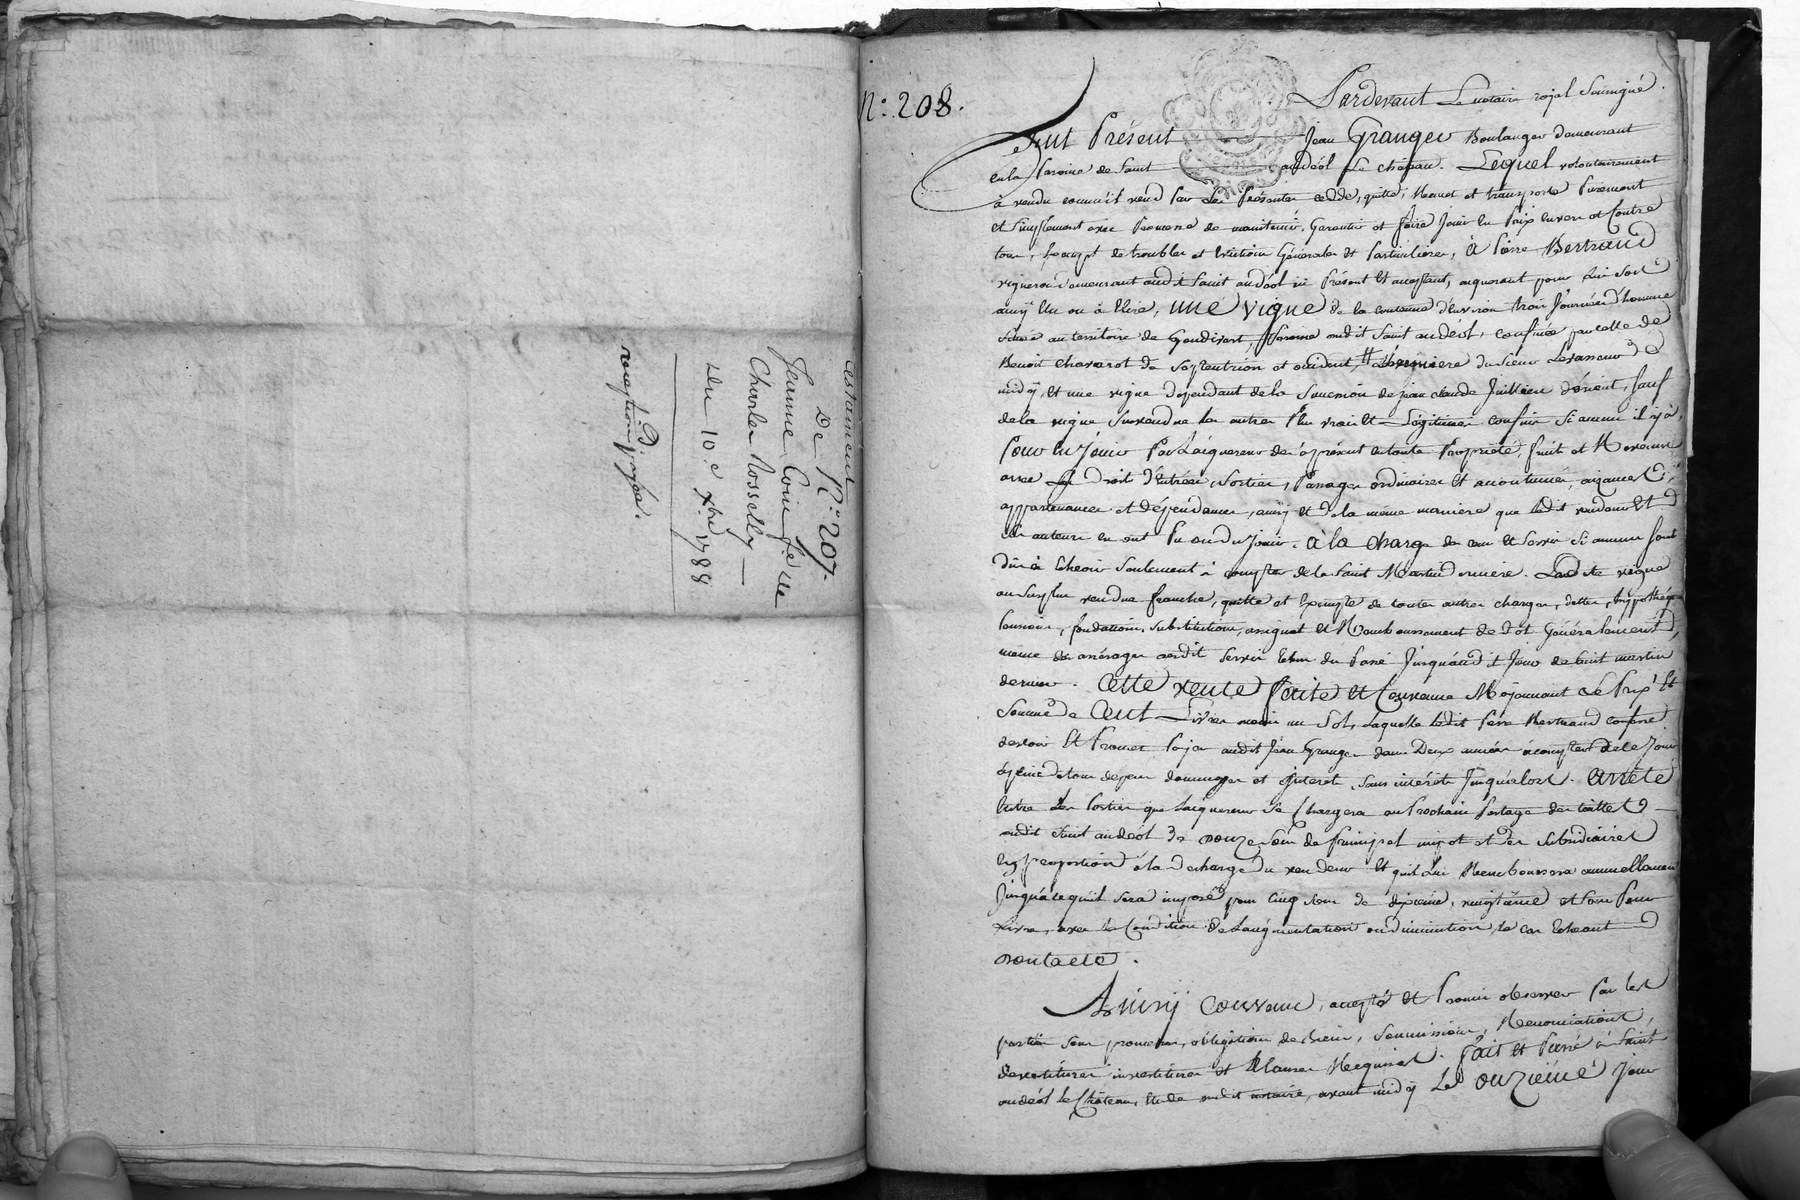 testament
De N.° 207.
Jeanne Coin fe. de
Charles Rosselly
Du 10 e xbre 1788
reception payée.
N.° 208.
Pardevant Le notaire royal Soussigné.
Fut Présent Jean Granger Boulanger demeurant
en la Paroisse de Saint andéol Le château. Lequel volontairement
à vendu comme il vend par Les Présentes cedde, quitte, Remet et transporte Purement
et Simplement avec Promesse de maintenir, Garantir et faire Jouir en Paix envers et Contre
tous, Exempt de troubles et Evictions Générales et Particulieres, à Pierre Bertrand
vigneron demeurant audit Saint andéol ici Présent et acceptant, acquerant pour Lui Son
amÿ Elu ou à Elire, une vigne de la contenue d'environ trois Journées d'homme
Située au territoire de Goudivert, Paroisse audit Saint andéol, confinée par celle de
Benoit Chavarot de Septentrion et occident, du Sieur Levasseur de
midÿ, et une vigne dépendant de la Succession de Jean claude Jullien d'orient, Sauf
de la vigne Susvendue Les autres Plus vrais et Légitimes confins Si aucuns il y à.
Pour en Jouir Par L'acquereur dès à présent en toute Propriété, fruits et Revenus
avec Les droits d'Entrées, Sorties, Passages ordinaires et accoutumés, aizances,
appartenances et dépendances, ainsÿ et de la même maniere que Ledit vendeur Et
Ses auteurs en ont Pu ou du Jouir. à la Charge des cens et Servis Si aucuns Sont
dûs à Echeoir Seulement à compter de la Saint Martin derniere. Ladite vigne
au Surplus vendue franche, quitte et Exempte de toutes autres charges, dettes, hÿpothéques
Pensions, fondations, Substitutions, assignat et Remboursement de dot Généralement,
même des arrérages desdits Servis Echus du Passé Jusqu'audit Jour de Saint martin
dernier. Cette vente faite et Convenue Moÿennant Le Prix Et
Somme de Cent Livres moins un Sol, Laquelle Ledit Pierre Bertrand confesse
devoir Et Promet Payer audit Jean Granger dans Deux années à compter de ce Jour
à peine de tous depens dommages et Interets, Sans intérêts Jusqu'alors. arrêté
Entre Les Parties que Lacquereur Se Chargera au Prochain Partage des tailles
audit Saint andéol de douze Sous de Principal impot et des Subsidiaires
En Proportion à la décharge du vendeur Et qu'il Lui Remboursera annuellement
Jusqu'à ce qu'il Sera imposé pour Cinq Sous de dixieme, vingtieme et Sous Pour
Livre, avec La Condition de L'augmentation ou diminution, le cas Echeant
Dont acte.
Ainsÿ Convenu, accepté et Promis observer Par Les
parties Sous promesses, obligations de Biens, Soumissions, Renonciations,
devestitures investitures et Clauses Requises. Fait et Passé à Saint
andéol le Château, Etude audit notaire, avant midÿ Le onzieme Jour